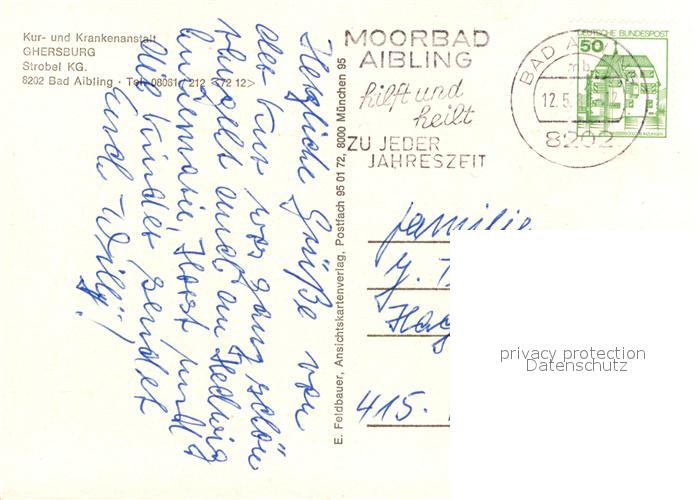 Kur- und Krankenanstalt
GHERSBURG
Strobel KG.
8202 Bad Aibling · Tel. 08061 / 212 <72 12>
Herzliche Grüße von
der Kur war ganz schön
auch an Hedwig
Horst und
die Kinder sendet
Euch Willy!
E. Feldbauer, Ansichtskartenverlag, Postfach 95 01 72, 8000 München 95
MOORBAD
AIBLING
hilft und
heilt
ZU JEDER
JAHRESZEIT
BAD
12.5.
8202
DEUTSCHE BUNDESPOST
50
familie
J.
415.
privacy protection
Datenschutz